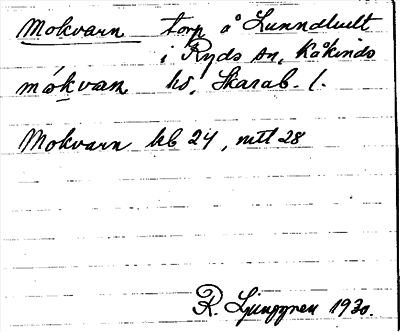 Mokvarn torp å Lunndtult
i Ryds sn, Kåkinds
mókvan hd, Skarab. l.
Mokvarn hb 24, mtl 28
R. Ljunggren 1930.